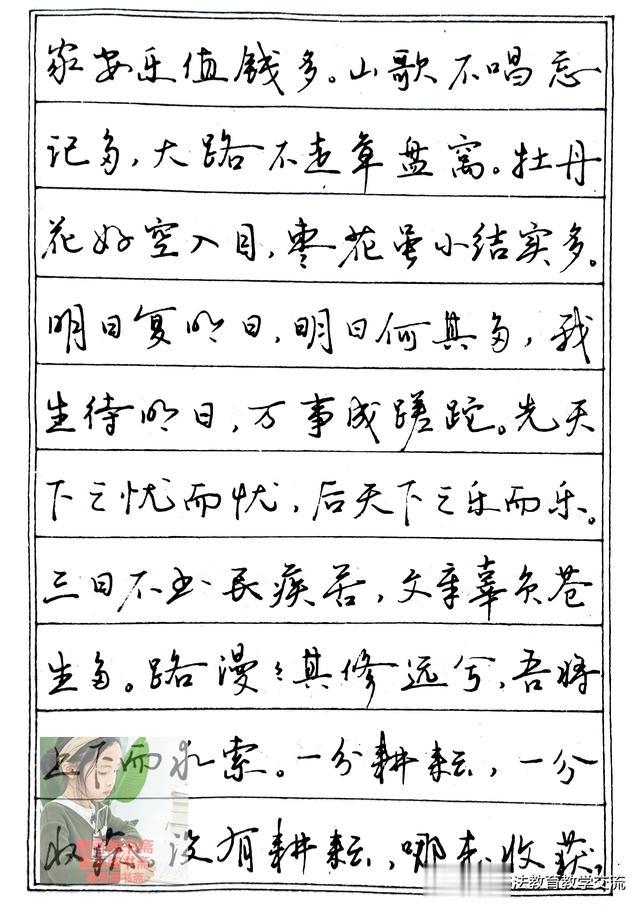 家安乐值钱多。山歌不唱忘
记多，大路不走草盘窝。牡丹
花好空入目，枣花虽小结实多。
明日复明日，明日何其多，我
生待明日，万事成蹉跎。先天
下之忧而忧，后天下之乐而乐。
三日不书民疾苦，文章辜负苍
生多。路漫漫其修远兮，吾将
上下而求索。一分耕耘，一分
收获。没有耕耘，哪来收获？
法教育教学交流